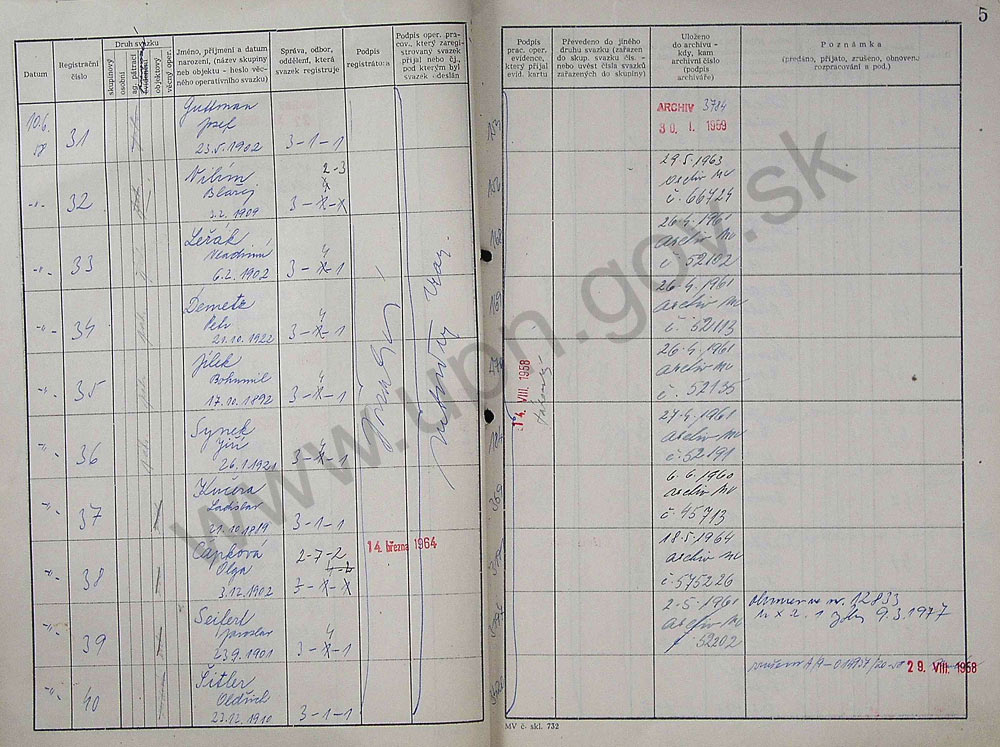 5
Datum
Registrační
číslo
Druh svazku
skupinový
osobní
ag. pátrací
objektový
věcný oper.
Jméno, příjmení a datum
narození, (název skupiny
neb objektu - heslo věc-
ného operativního svazku)
Správa, odbor,
oddělení, která
svazek registruje
Podpis
registrátora
Podpis oper. pra-
cov., který zaregi-
strovaný svazek
přijal nebo čj.,
pod kterým byl
svazek odeslán
Podpis
prac. oper.
evidence,
který přijal
evid. kartu
Převedeno do jiného
druhu svazku (zařazen
do skup. svazku čís. -
nebo uvést čísla svazků
zařazených do skupiny)
Uloženo
do archivu -
kdy, kam
archivní číslo
(podpis
archiváře)
Poznámka
(předáno, přijato, zrušeno, obnoven.
rozpracování a pod.)
10.6.
58
31
Guttman
Josef
23.5.1902
3-1-1
153
ARCHIV 3784
30. I. 1959
-"-
32
Vilím
Blažej
3.2.1909
2-3
3-X-X
29.5.1963
archiv MV
č. 66724
-"-
33
Ležák
Vladimír
6.2.1902
4
3-X-1
168
26.4.1961
archiv MV
č. 52102
-"-
34
Demetr
Petr
21.10.1922
4
3-X-1
169
26.4.1961
archiv MV
č. 52113
-"-
35
Jílek
Bohumil
17.10.1892
4
3-X-1
14. VIII. 1958
26.4.1961
archiv MV
č. 52135
-"-
36
Synek
Jiří
26.1.1921
4
3-X-1
27.4.1961
archiv MV
č. 52191
-"-
37
Kučera
Ladislav
21.10.1919
3-1-1
369
6.6.1960
archiv MV
č. 45713
-"-
38
Čapková
Olga
3.12.1902
2-7-2
3-X-X
14. března 1964
18.5.1964
archiv MV
č. 575226
-"-
39
Seifert
Jaroslav
23.9.1901
4
3-X-1
2.5.1961
archiv MV
52202
12833
9.3.1977
-"-
40
Šitler
Oldřich
23.12.1910
3-1-1
29. VIII. 1958
MV č. skl. 732
www.upn.gov.sk